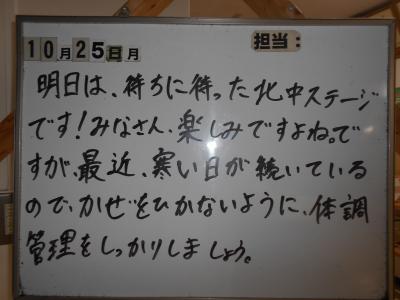 担当:
10月25日月
明日は、待ちに待った北中ステージ
です!みなさん、楽しみですよね。で
すが、最近、寒い日が続いている
ので、かぜをひかないように、体調
管理をしっかりしましょう。